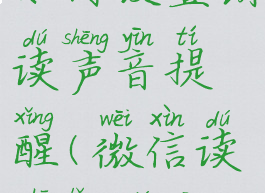 dú shēng yīn tí
读声音提
xǐng wēi xìn dú
醒(微信读